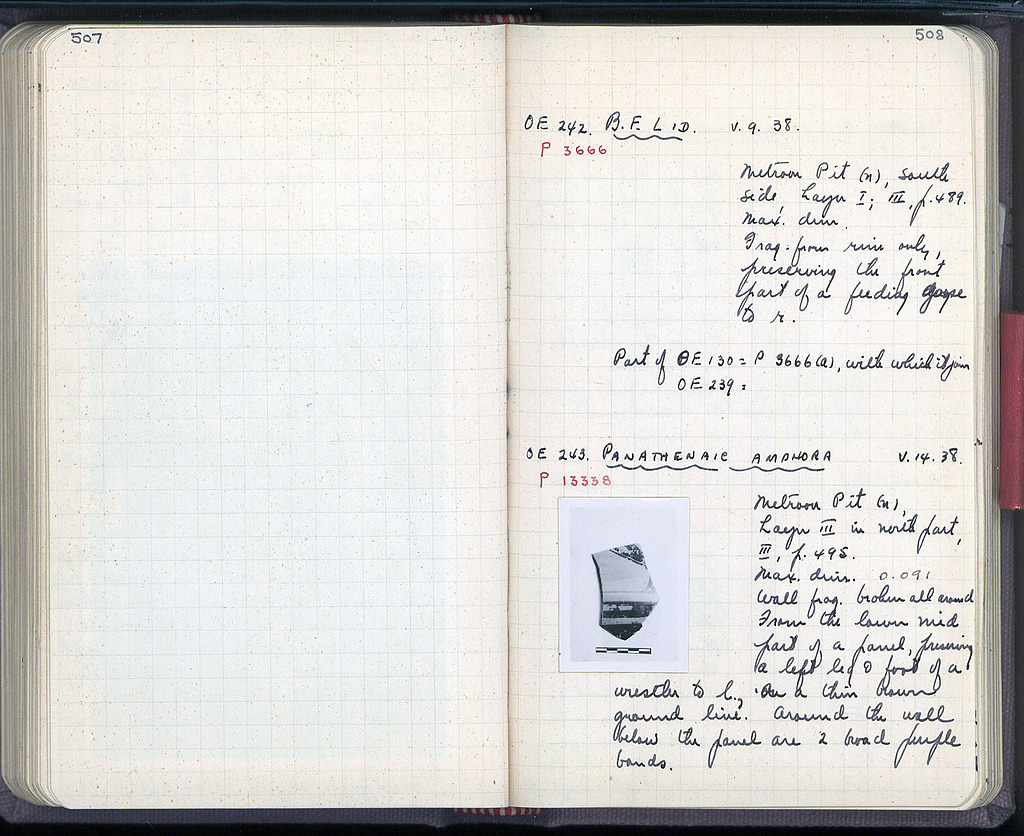 507
508
OE 242. B.F. LID. V. 9. 38.
P 3666
Metroon Pit (n), south
side, Layer I; III, p. 489.
Max. dim.
Frag. from rim only,
preserving the front
part of a feeding goose
to r.
Part of OE 130 = P 3666(a), with which it joins
OE 239 =
OE 243. PANATHENAIC AMPHORA V. 14. 38.
P 13338
Metroon Pit (n),
Layer III in north part,
III, p. 495.
Max. dim. 0.091
Wall frag. broken all around
From the lower mid
part of a panel, preserving
a left leg & foot of a
wrestler to l., on a thin brown
ground line. Around the wall
below the panel are 2 broad purple
bands.